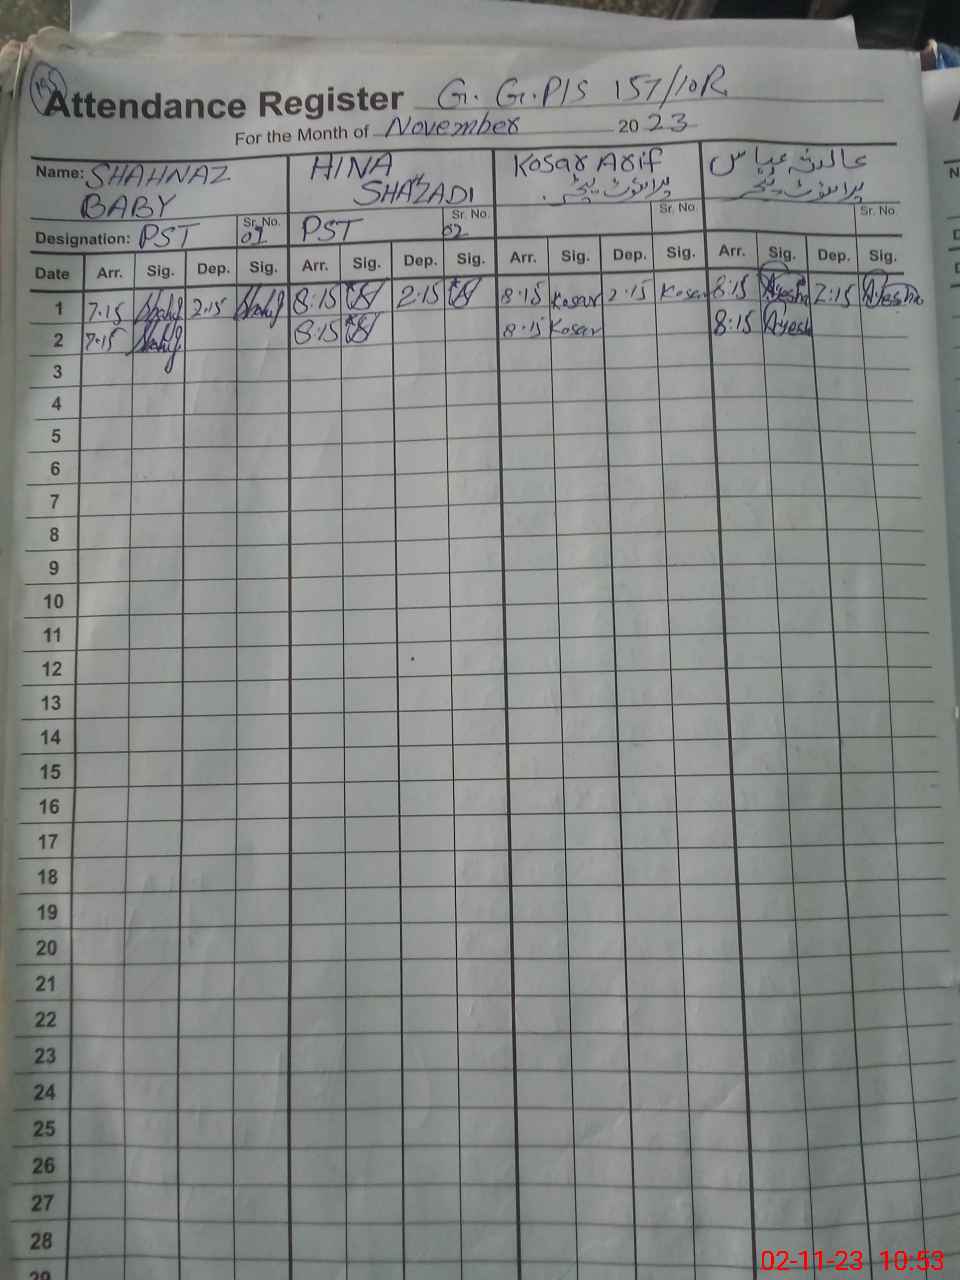 Attendance Register G. G.P/S 157/10R
For the Month of November 2023
Name: SHAHNAZ BABY HINA SHAHZADI Kosar Arif عائشہ عباس
پرائیویٹ ٹیچر پرائیویٹ ٹیچر
Designation: PST Sr. No. 01 PST Sr. No. 02 Sr. No. Sr. No.
Date Arr. Sig. Dep. Sig. Arr. Sig. Dep. Sig. Arr. Sig. Dep. Sig. Arr. Sig. Dep. Sig.
1 7.15 2.15 8:15 2:15 8.15 Kosar 2.15 Kosar 8:15 Ayesha 2:15 Ayesha
2 7.15 8:15 8.15 Kosar 8:15 Ayesh
3
4
5
6
7
8
9
10
11
12
13
14
15
16
17
18
19
20
21
22
23
24
25
26
27
28
29
02-11-23 10:53